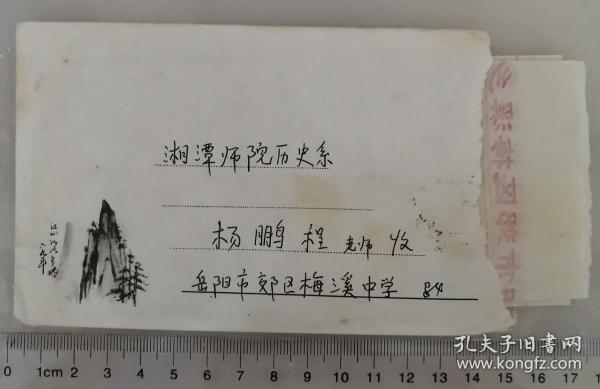 湘潭师院历史系
杨鹏程 老师 收
岳阳市郊区梅溪中学
0 1cm 2 3 4 5 6 7 8 9 10 11 12 13 14 15 16 17
孔夫子旧书网
www.kongfz.com